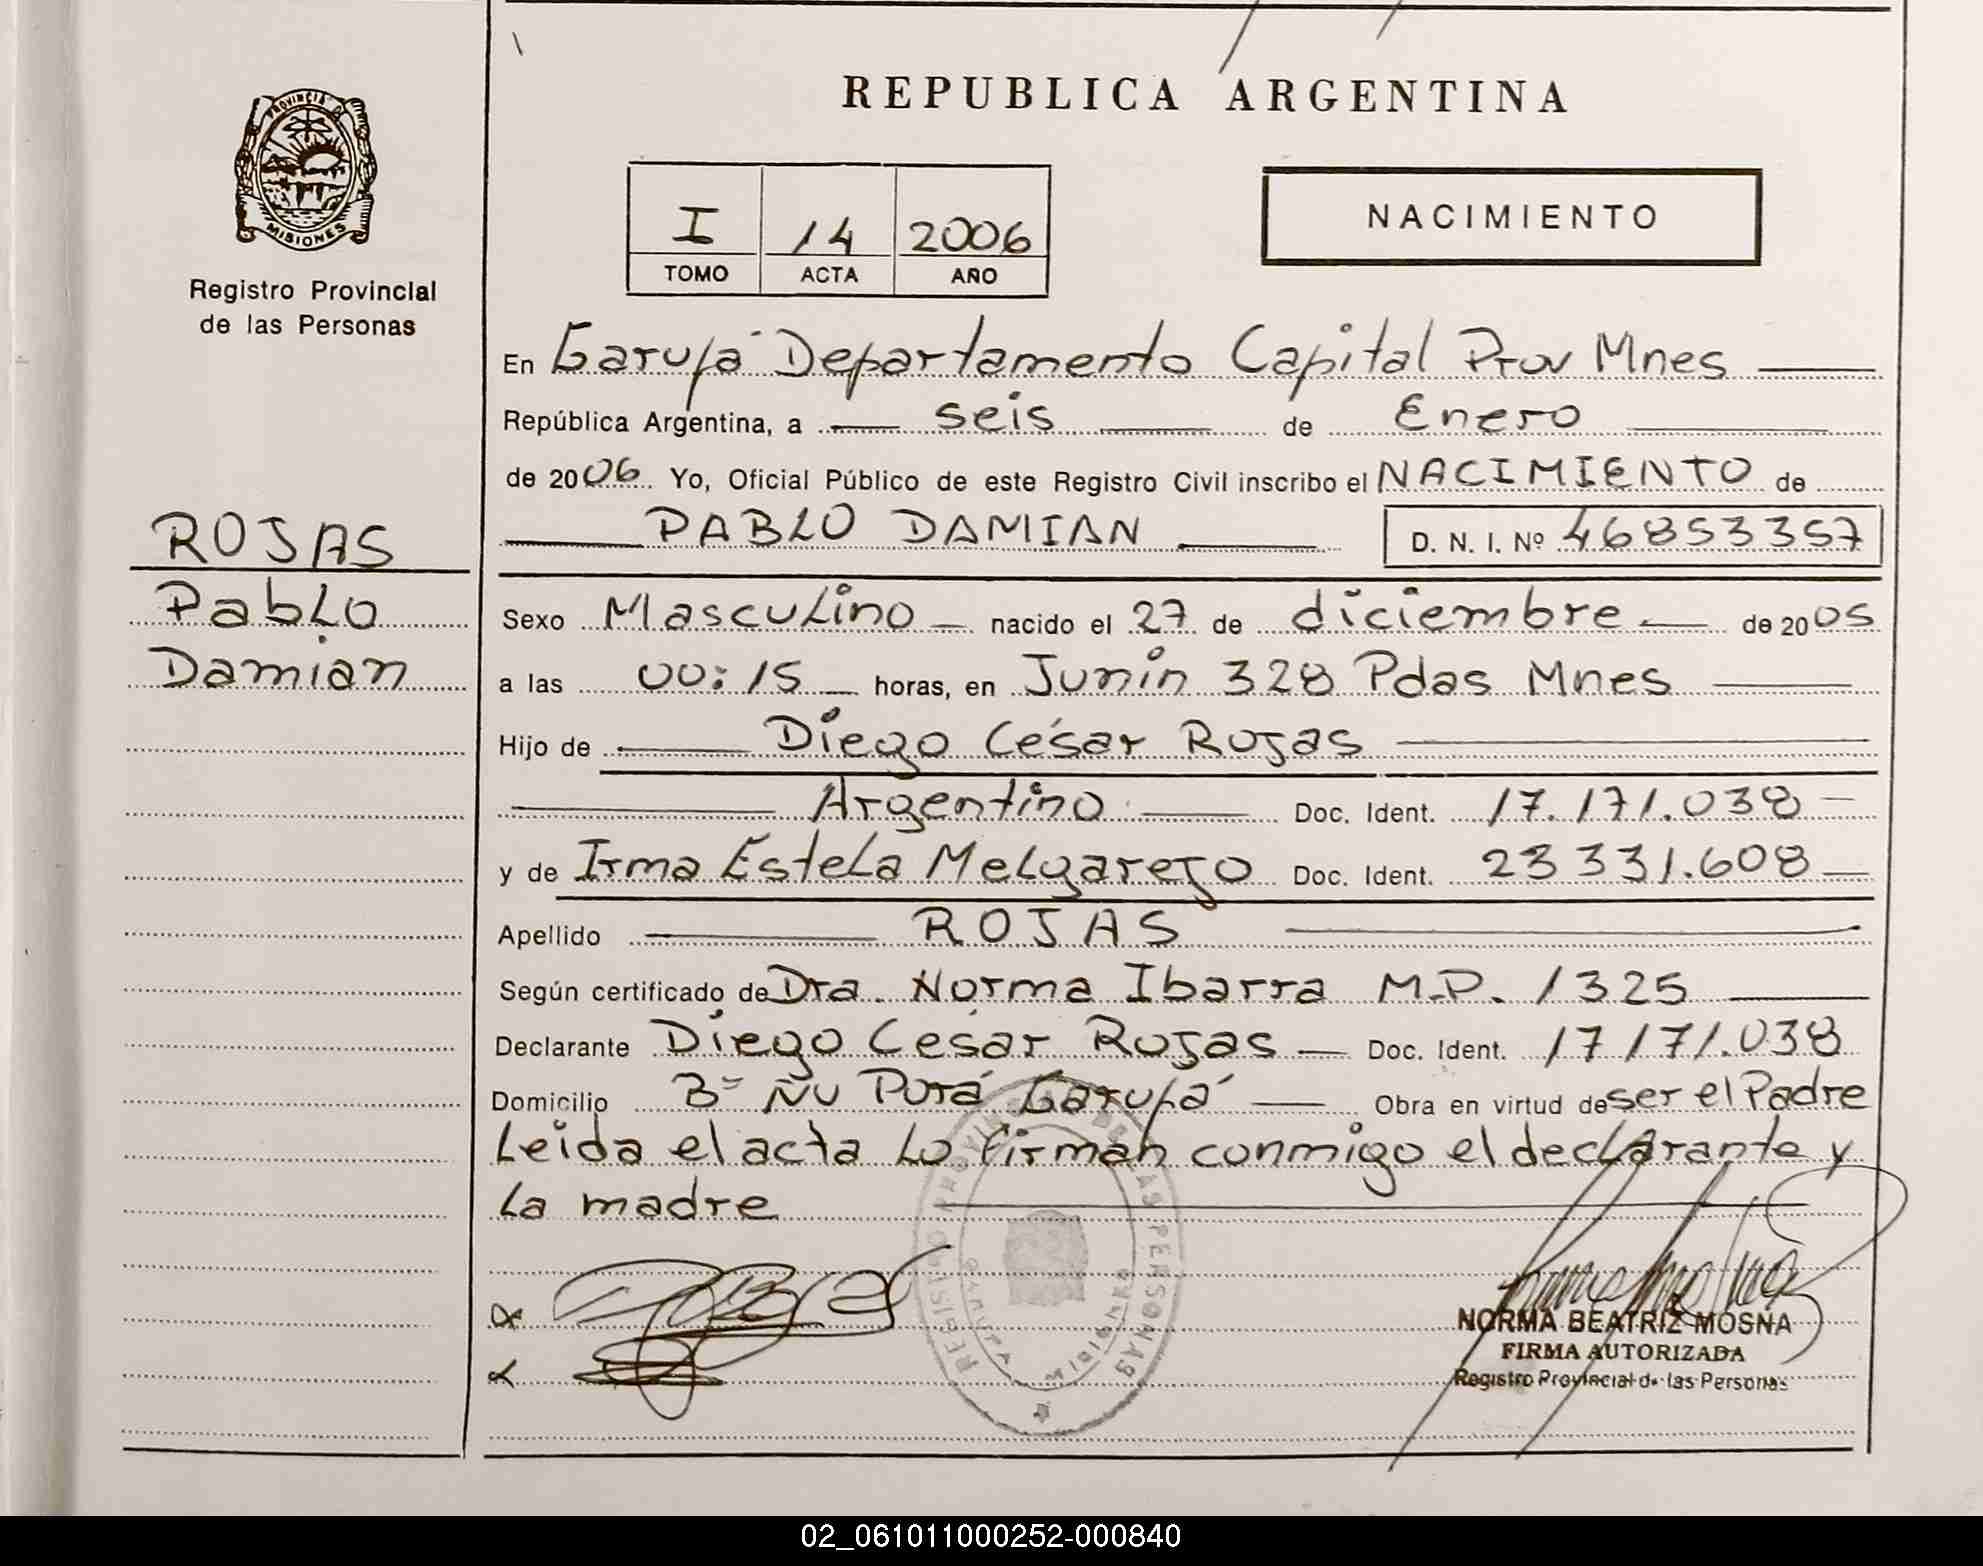 REPUBLICA ARGENTINA
PROVINCIA DE MISIONES
Registro Provincial
de las Personas
I 14 2006
TOMO ACTA AÑO
NACIMIENTO
En Garupá Departamento Capital Prov Mnes
República Argentina, a seis de Enero
de 2006 Yo, Oficial Público de este Registro Civil inscribo el NACIMIENTO de
PABLO DAMIAN D. N. I. Nº 46853357
ROJAS
Pablo
Damian
Sexo Masculino nacido el 27 de diciembre de 2005
a las 00:15 horas, en Junín 328 Pdas Mnes
Hijo de Diego César Rojas
Argentino Doc. Ident. 17.171.038
y de Irma Estela Melgarejo Doc. Ident. 23 331.608
Apellido ROJAS
Según certificado de Dra. Norma Ibarra M.P. 1325
Declarante Diego César Rojas Doc. Ident. 17171.038
Domicilio Bº Ñu Porá Garupá Obra en virtud de ser el Padre
Leida el acta Lo firman conmigo el declarante y
La madre
REGISTRO PROVINCIAL DE LAS PERSONAS
GARUPA
NORMA BEATRIZ MOSNA
FIRMA AUTORIZADA
Registro Provincial de las Personas
02_061011000252-000840